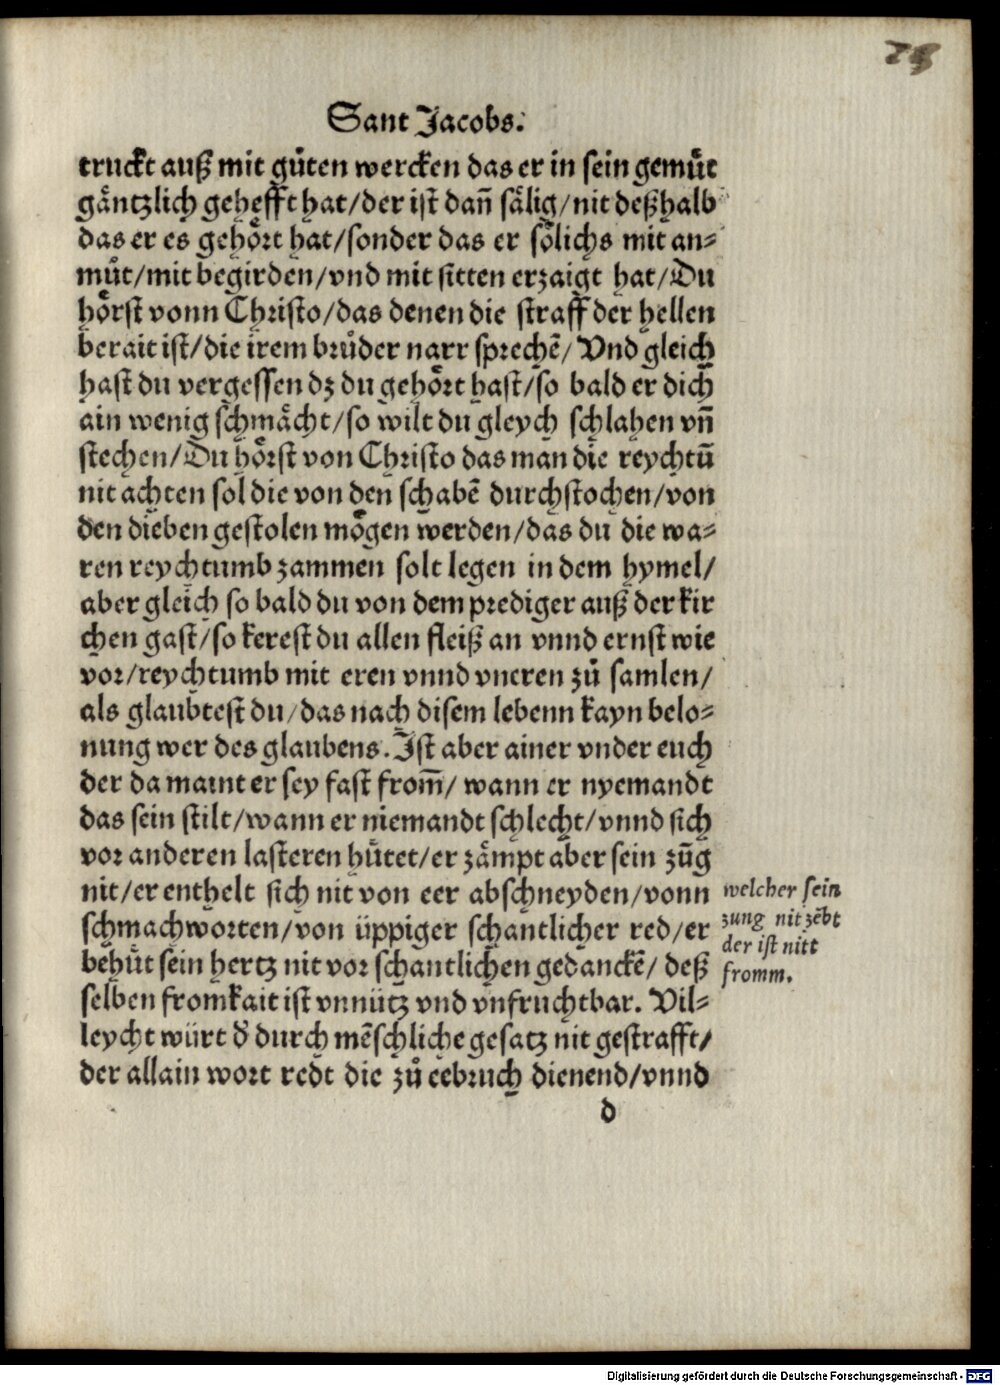 25
Sant Jacobs.
truckt auß mit gůten wercken das er in sein gemůt
gäntzlich gehefft hat/der ist dañ sälig/nit deßhalb
das er es gehört hat/sonder das er sölichs mit an⸗
můt/mit begirden/vnd mit sitten erzaigt hat/Du
hörst vonn Christo/das denen die straff der hellen
berait ist/die irem brůder narr sprechẽ/Vnd gleich
hast du vergessen dz du gehört hast/so bald er dich
ain wenig schmächt/so wilt du gleych schlahen vñ
stechen/Du hörst von Christo das man die reychtũ
nit achten sol die von den schabẽ durchstochen/von
den dieben gestolen mögen werden/das du die wa⸗
ren reychtumb zammen solt legen in dem hymel/
aber gleich so bald du von dem prediger auß der kir
chen gast/so kerest du allen fleiß an vnnd ernst wie
vor/reychtumb mit eren vnnd vneren zů samlen/
als glaubtest du/das nach disem lebenn kayn belo⸗
nung wer des glaubens. Ist aber ainer vnder euch
der da maint er sey fast from̃/ wann er nyemandt
das sein stilt/wann er niemandt schlecht/vnnd sich
vor anderen lasteren hůtet/er zämpt aber sein zũg
nit/er enthelt sich nit von eer abschneyden/vonn
schmachworten/von üppiger schantlicher red/er
behůt sein hertz nit vor schantlichen gedanckẽ/ deß
selben fromkait ist vnnütz vnd vnfruchtbar. Vil⸗
leycht würt d̕ durch mẽschliche gesatz nit gestrafft/
der allain wort redt die zů eebruch dienend/vnnd
welcher sein
zung nit zẽbt
der ist nitt
fromm.
d
Digitalisierung gefördert durch die Deutsche Forschungsgemeinschaft - DFG